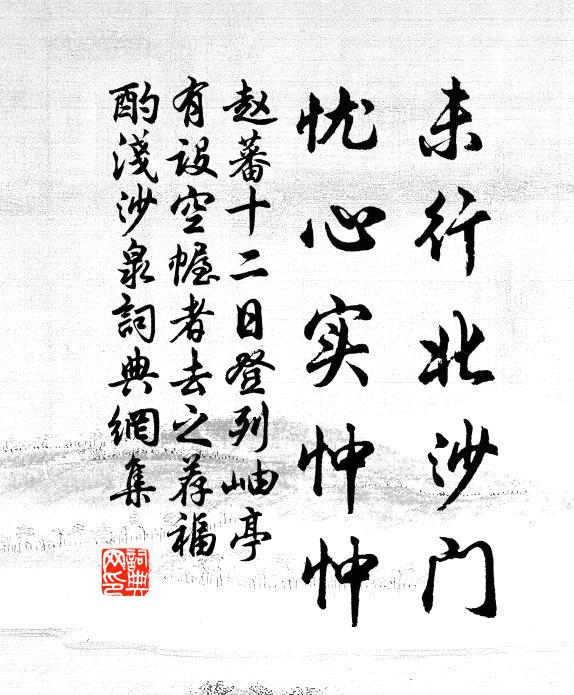 未行北沙门
忧心实忡忡
赵蕃十二日登列岫亭
有设空幄者去之荐福
酌浅沙泉詞典網集
詞典網印